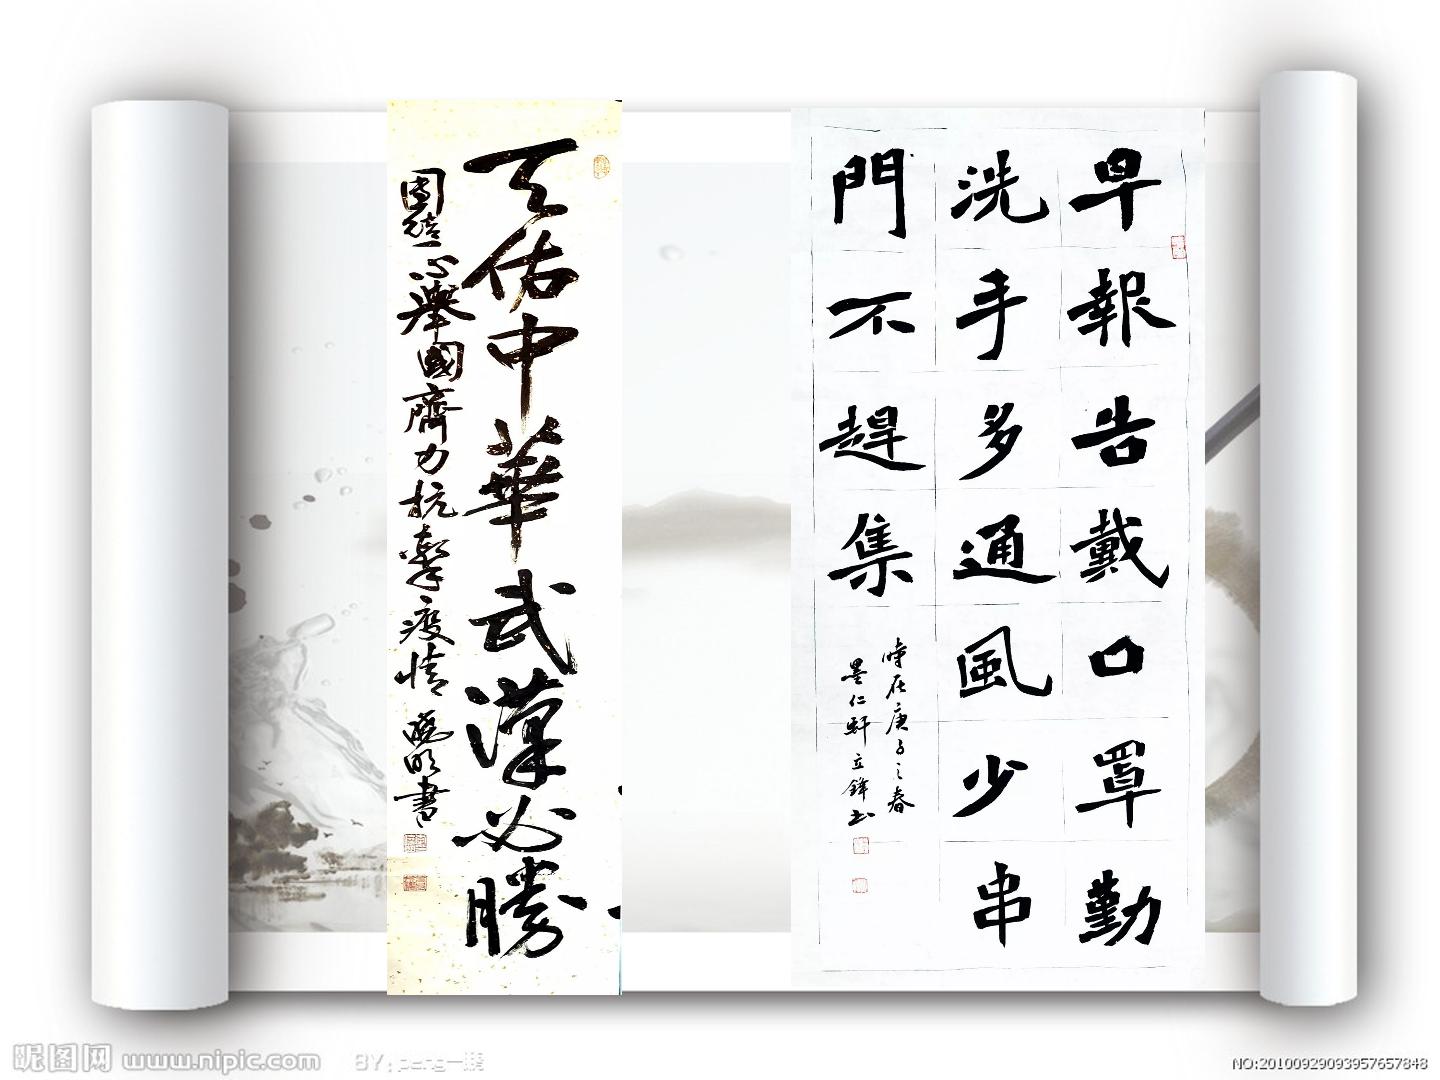 早報告戴口罩勤
洗手多通風少串
門不趕集
時在庚子之春
墨仁軒立鋒书
天佑中華武漢必勝
團結一心舉國齊力抗擊疫情 曉明書
昵图网 www.nipic.com
BY:peng一鹏
NO:20100929093957657848